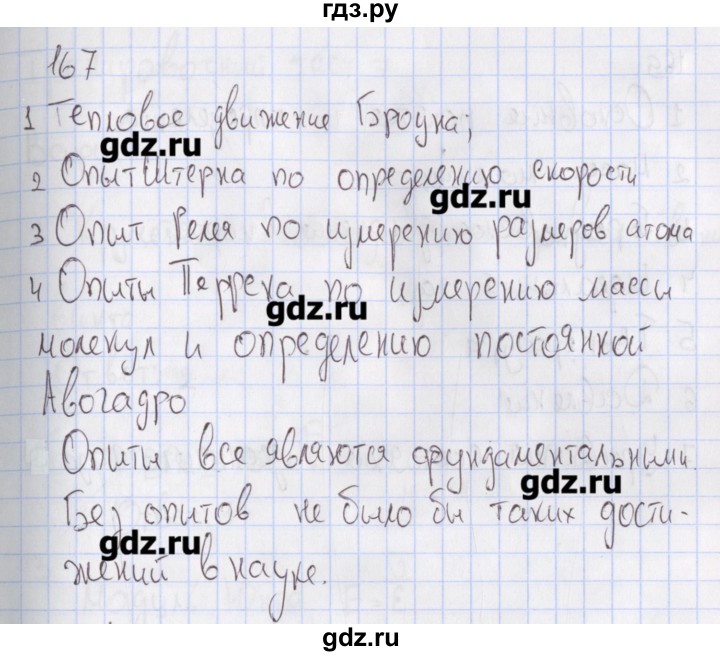 гдз.ру
167
1 Тепловое движение Броуна;
gdz.ru
2 Опыт Штерна по определению скорости
gdz.ru
3 Опыт Релея по измерению размеров атома
4 Опыты Перрена по измерению массы
gdz.ru
молекул и определению постоянной
Авогадро
Опыты все являются фундаментальными.
gdz.ru
Без опытов не было бы таких дости-
gdz.ru
жений в науке.
gdz.ru